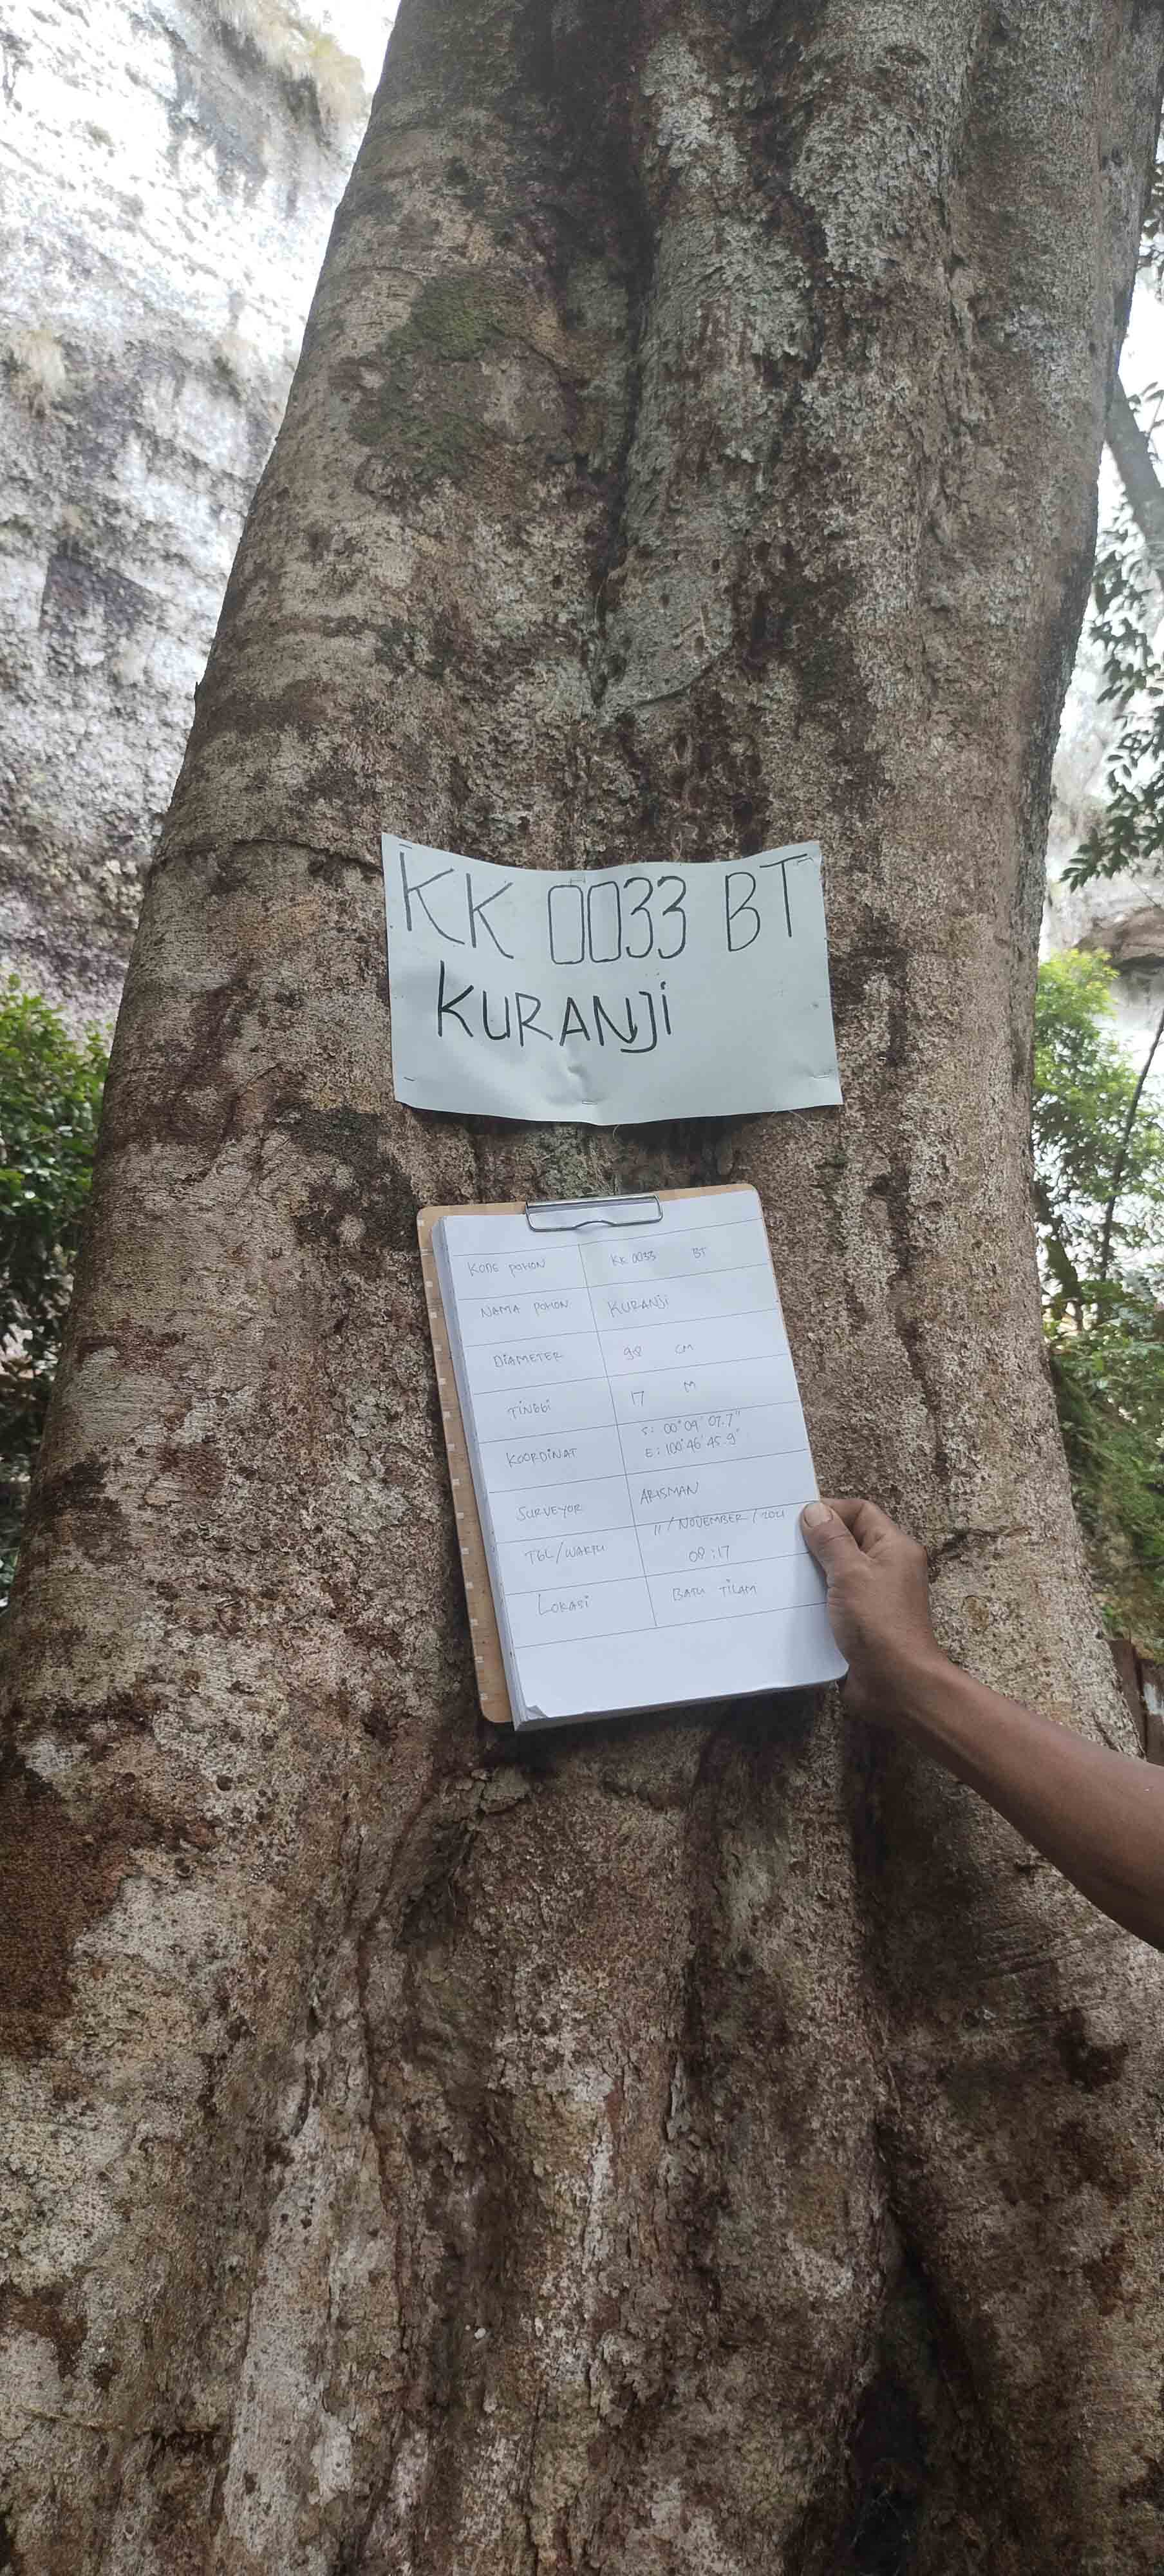 KK 0033 BT
KURANJi
KODE POHON KK 0033 BT
NAMA POHON KURANJi
DiAMETER 98 CM
TiNGGi 17 M
KOORDiNAT S: 00°09'07.7"
E: 100°46'45.9"
SURVEYOR ARISMAN
TGL/WAKTU 11/NOVEMBER/2021
08:17
LOKASi BATU TiLAM